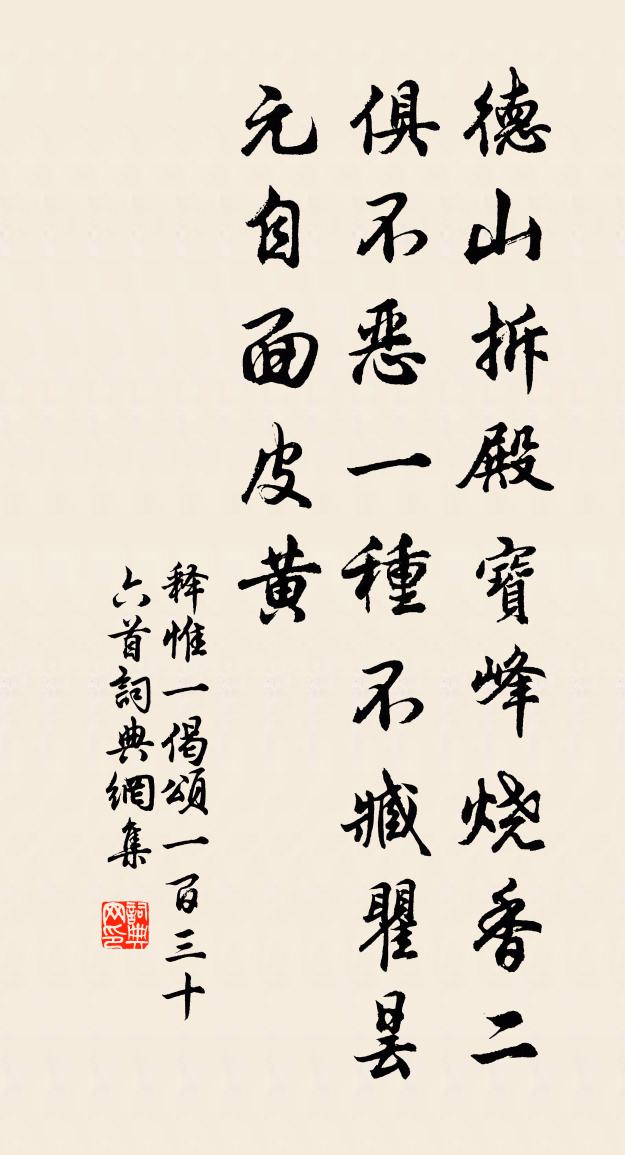 德山拆殿寶峰烧香二
俱不惡一種不臧瞿曇
元自面皮黄
释惟一偈頌一百三十
六首詞典網集
詞典网印